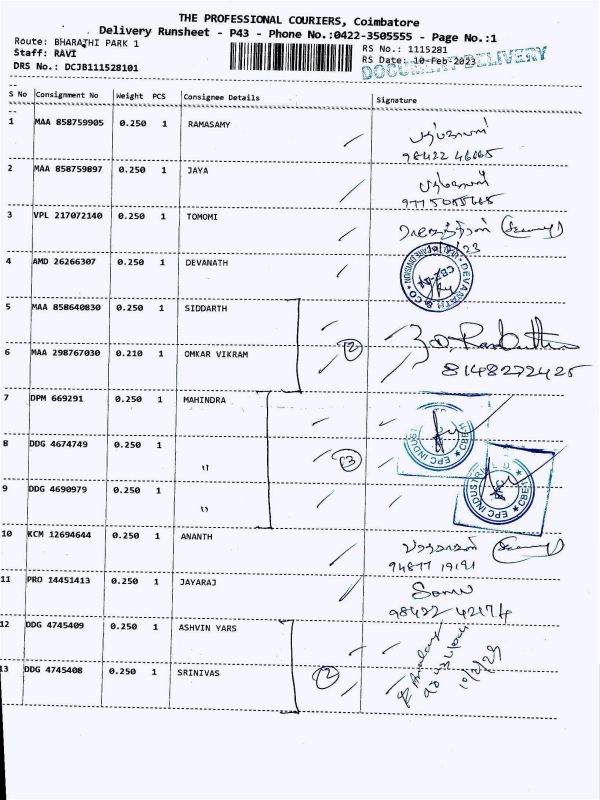 THE PROFESSIONAL COURIERS, Coimbatore
Delivery Runsheet - P43 - Phone No.:0422-3505555 - Page No.:1
Route: BHARATHI PARK 1 RS No.: 1115281
Staff: RAVI RS Date: 10-Feb-2023
DRS No.: DCJB111528101 DOCUMENT DELIVERY
S No Consignment No Weight PCS Consignee Details Signature
1 MAA 858759905 0.250 1 RAMASAMY
2 MAA 858759897 0.250 1 JAYA
3 VPL 217072140 0.250 1 TOMOMI
4 AMD 26266307 0.250 1 DEVANATH
DEVANATH & CO
5 MAA 858640830 0.250 1 SIDDARTH
6 MAA 298767030 0.210 1 OMKAR VIKRAM (2)
8148272425
7 DPM 669291 0.250 1 MAHINDRA
EPC INDUST
8 DDG 4674749 0.250 1 " (3)
9 DDG 4690979 0.250 1 "
EPC INDUSTRIAL
10 KCM 12694644 0.250 1 ANANTH
11 PRO 14451413 0.250 1 JAYARAJ
98422 42174
12 DDG 4745409 0.250 1 ASHVIN YARS
13 DDG 4745408 0.250 1 SRINIVAS (2)